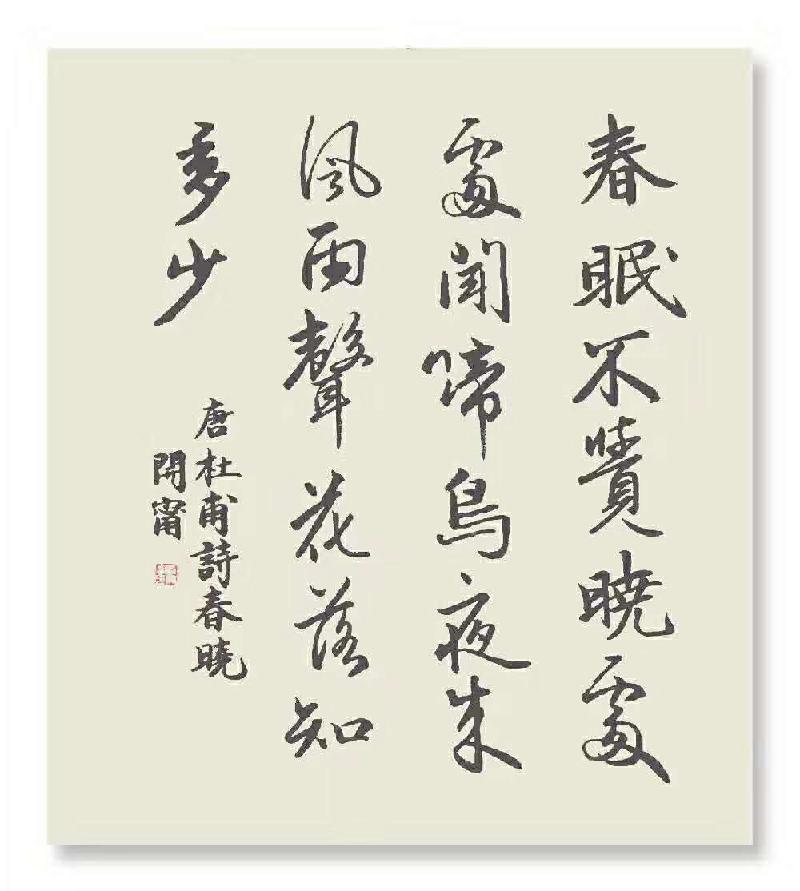 春眠不覺曉處
處聞啼鳥夜來
風雨聲花落知
多少
唐杜甫詩春曉
開甯